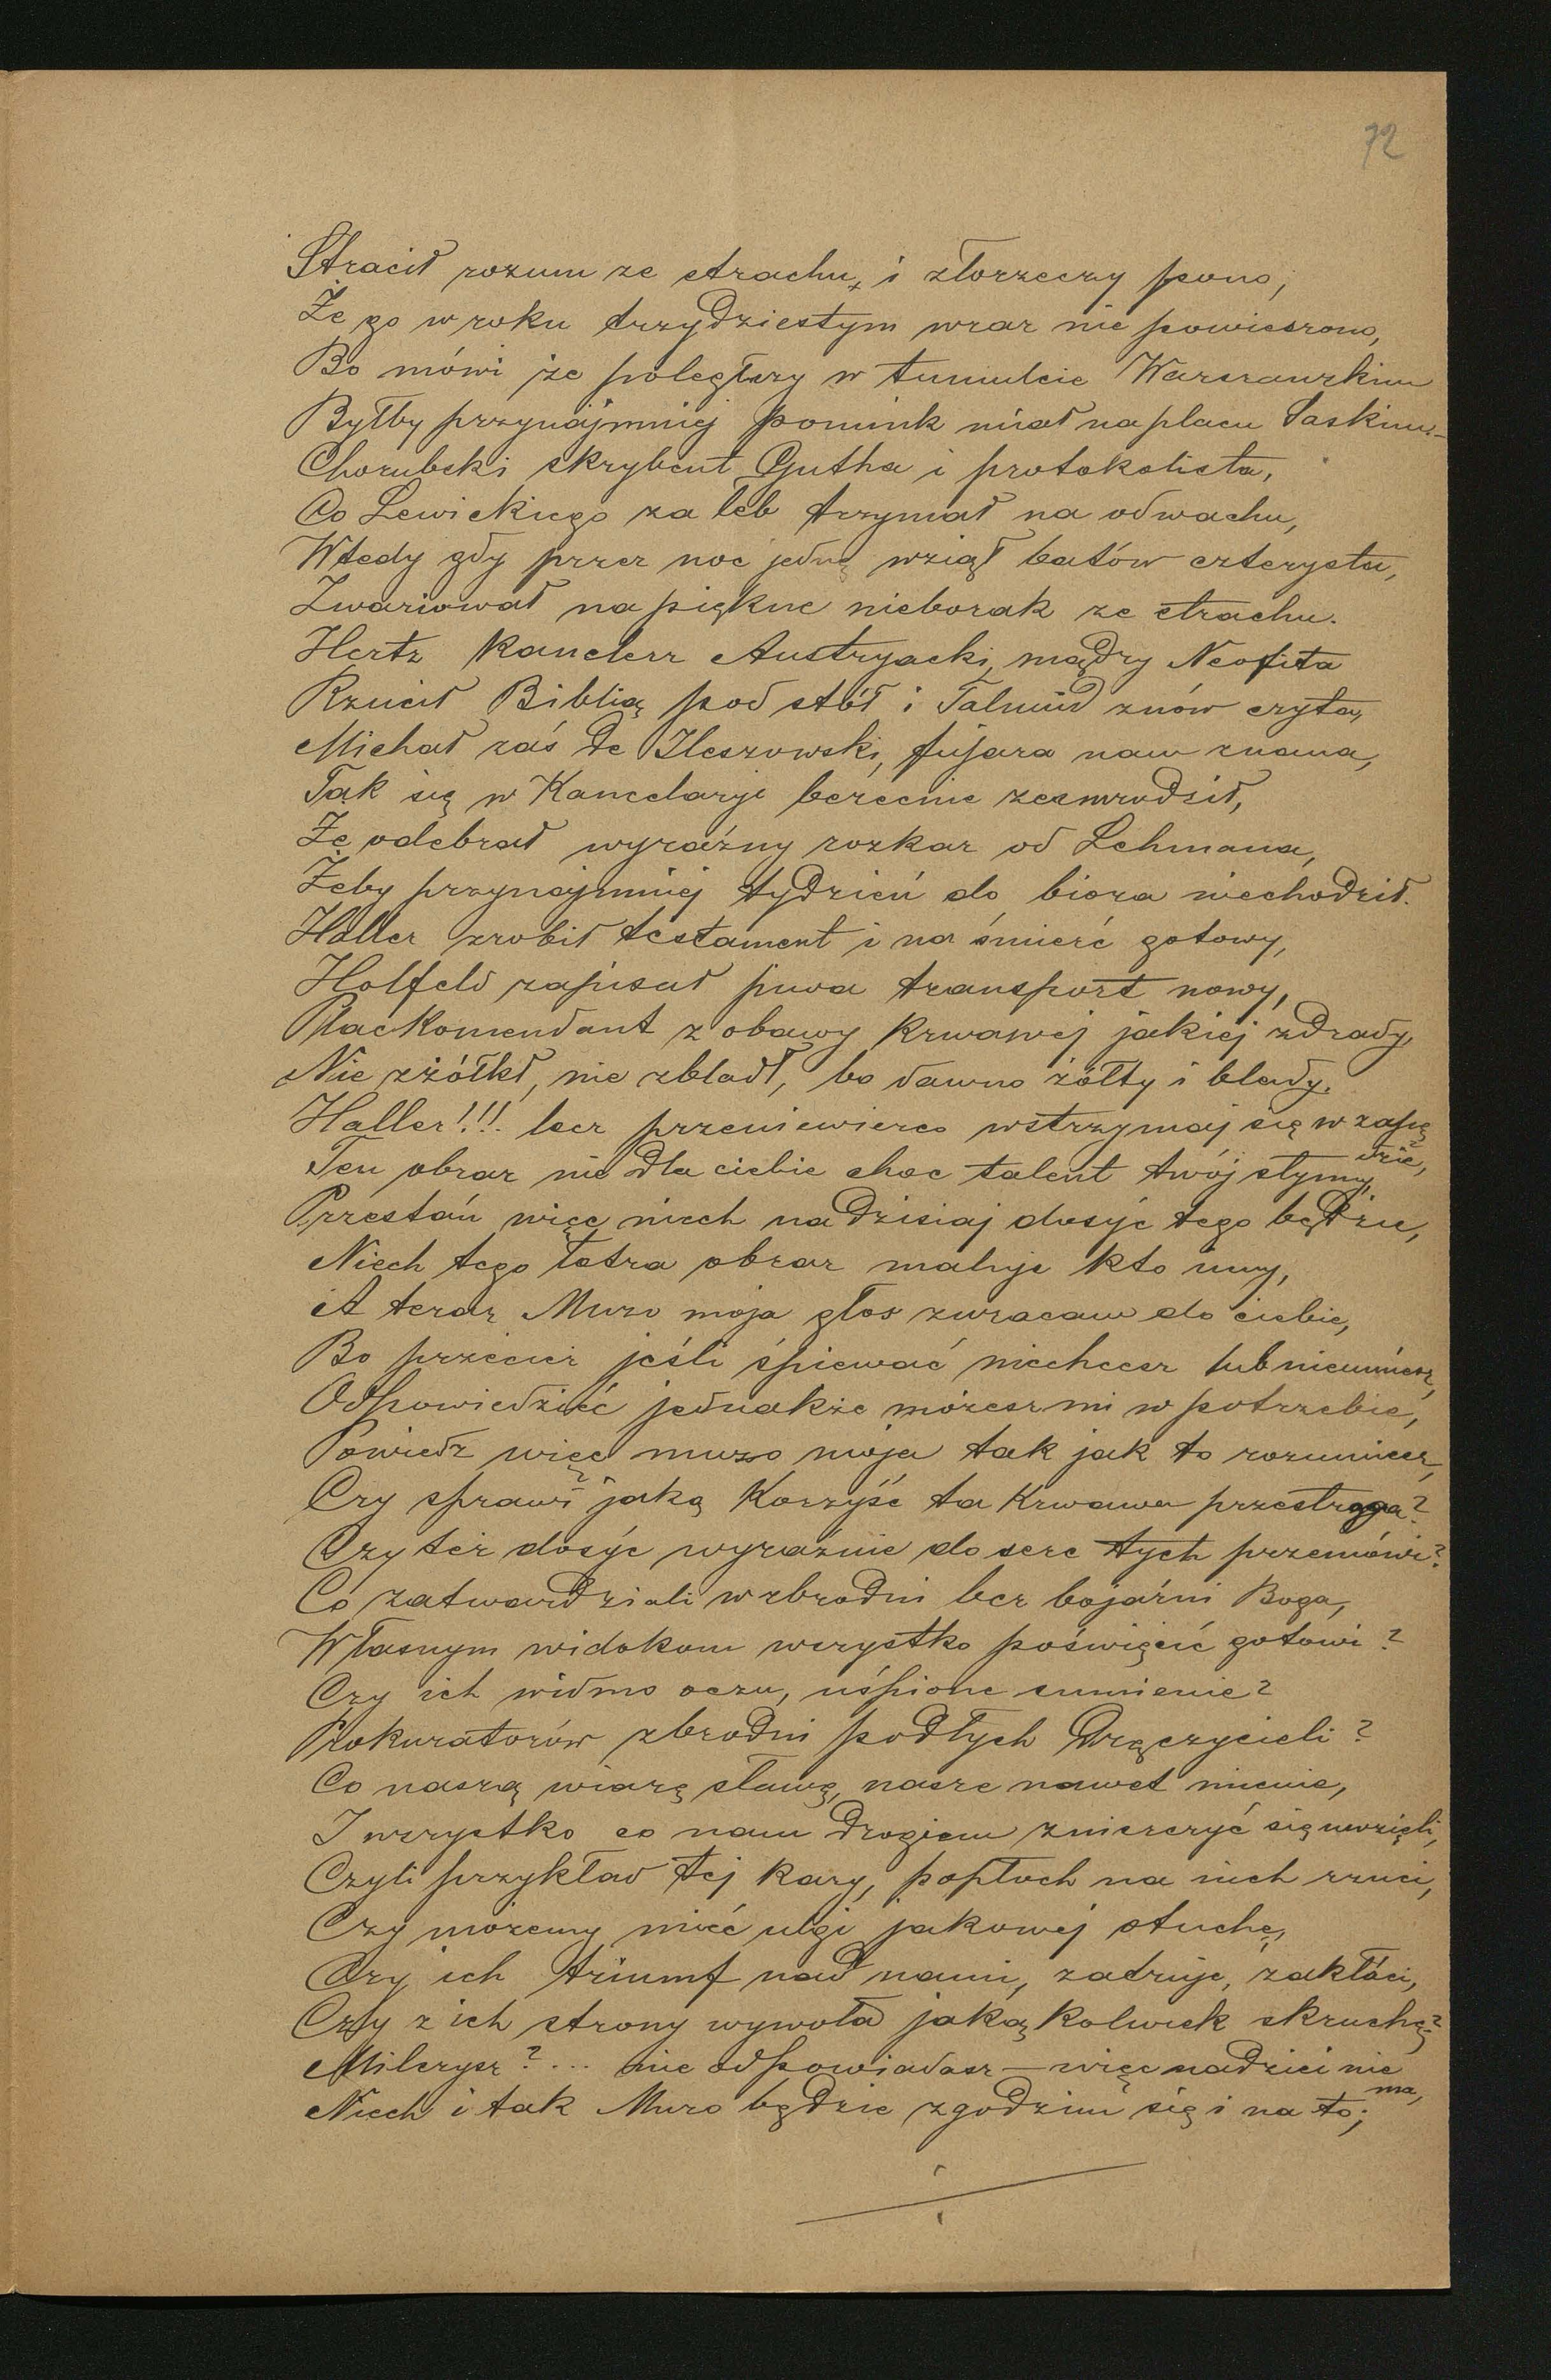 72
Stracił rozum ze strachu, i złorzeczy pono,
Że go w roku trzydziestym wraz nie powieszono,
Bo mówi że poległszy w tumulcie Warszawskim
Byłby przynajmniej pomink miał na placu Saskim –
Chorubski skrybent Gutha i protokolista,
Co Lewickiego za łeb trzymał na odwachu,
Wtedy gdy przez noc jedną wziął batów czterysta,
Zwariował na piękne nieborak ze strachu.
Hertz Kanclerz Austryacki, mądry Neofita
Rzucił Biblią pod stół i Talmud znów czyta,
Michał zaś de Ileszowski, fujara nam znana,
Tak się w Kancelaryi bezecnie zesmrodził,
Że odebrał wyraźny rozkaz od Lehmana,
Żeby przynajmniej tydzień do biora niechodził.
Haller zrobił testament i na śmierć gotowy,
Holfeld zapisał piwa transport nowy,
Plackomendant z obawy krwawej jakiej zdrady,
Nie zżółkł, nie zbladł, bo dawno żółty i blady.
Haller!!! lecz przeniewierco wstrzymaj się w zapę
dzie,
Ten obraz nie dla ciebie choc talent twój słynny,
Przestań więc niech na dzisiaj dosyć tego będzie,
Niech tego łotra obraz maluje kto inny,
A teraz Muzo moja głos zwracam do ciebie,
Bo przecież jeśli śpiewać niechcesz lub nieumiesz,
Odpowiedzieć jednakże możesz mi w potrzebie,
Powiedz więc muzo moja tak jak to rozumiesz,
Czy sprawi jaką korzyść ta krwawa przestroga?
Czy też dosyć wyraźnie do serc tych przemówi?
Co zatwardziali w zbrodni bez bojaźni Boga,
Własnym widokom wszystko poświęcić gotowi?
Czy ich widmo oczu, uśpione sumienie?
Prokuratorów zbrodni podłych dręczycieli?
Co naszą wiarę sławę, nasze nawet mienie,
I wszystko co nam drogiem zniszczyć się uwzięli,
Czyli przykład tej kary, popłoch na nich rzuci,
Czy możemy mieć ulgi jakowej otuchę,
Czy ich triumf nad nami, zatruje, zakłóci,
Czy z ich strony wywoła jakąkolwiek skruchę?
Milczysz?... nie odpowiadasz – więc nadziei nie
ma,
Niech i tak Muzo będzie zgodzim się i na to;